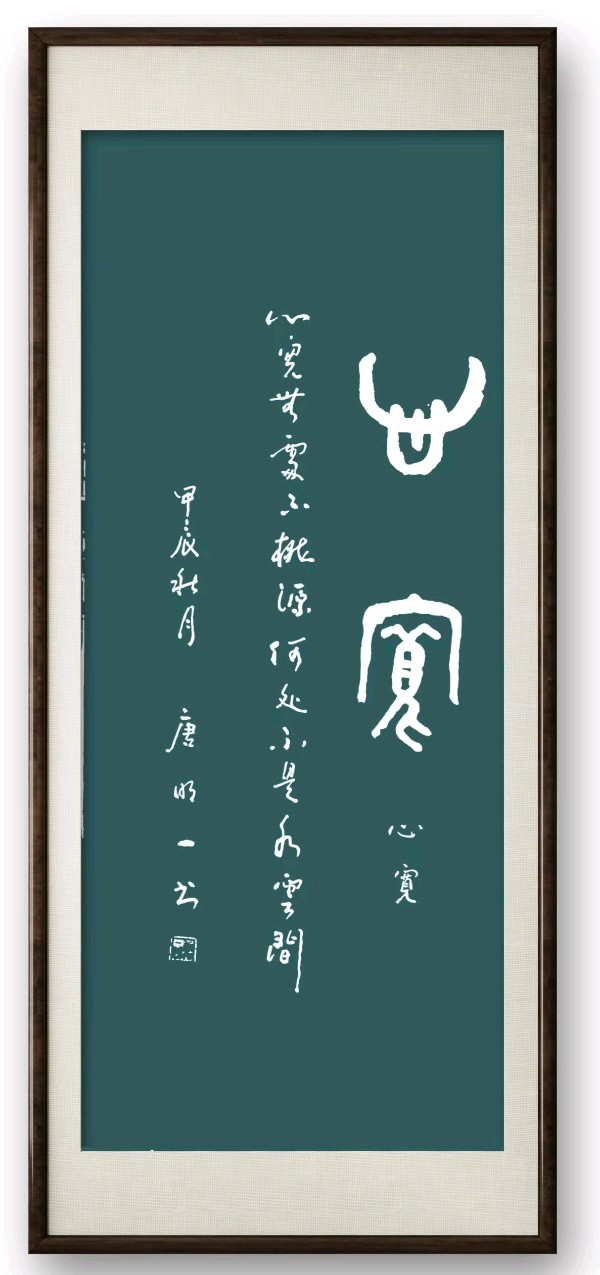 心寬
心寬
心寬無處不桃源何处不是水雲間
甲辰秋月 唐明一书